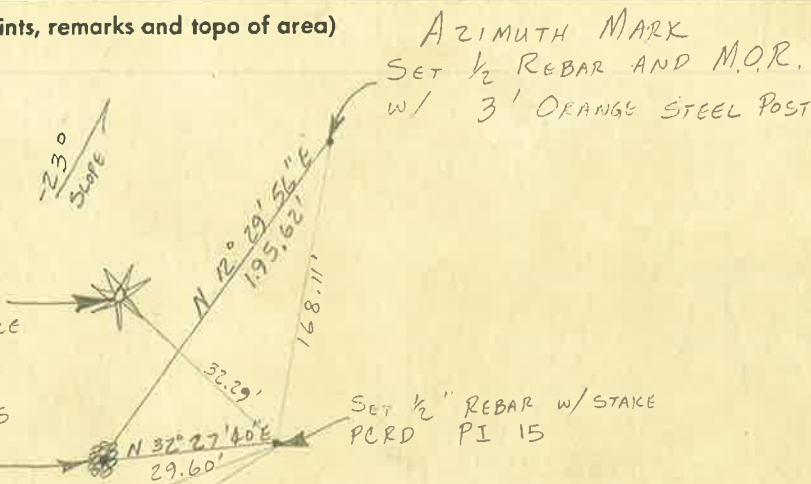 ints, remarks and topo of area)
AZIMUTH MARK
SET 1/2 REBAR AND M.O.R.
W/ 3' ORANGE STEEL POST
-23°
SLOPE
N 12° 29' 56" E
195.62'
168.11'
32.29'
SET 1/2" REBAR W/ STAKE
PCRD PI 15
N 32° 27' 40" E
29.60'